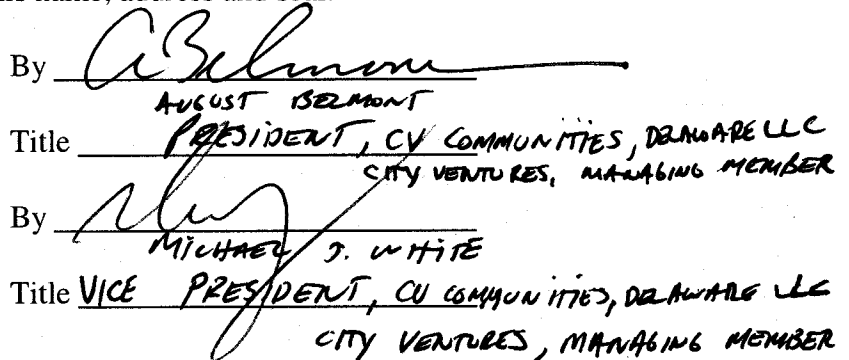 By A Belmont
AUGUST BELMONT
Title PRESIDENT, CV COMMUNITIES, DELAWARE LLC
CITY VENTURES, MANAGING MEMBER
By
MICHAEL J. WHITE
Title VICE PRESIDENT, CV COMMUNITIES, DELAWARE LLC
CITY VENTURES, MANAGING MEMBER